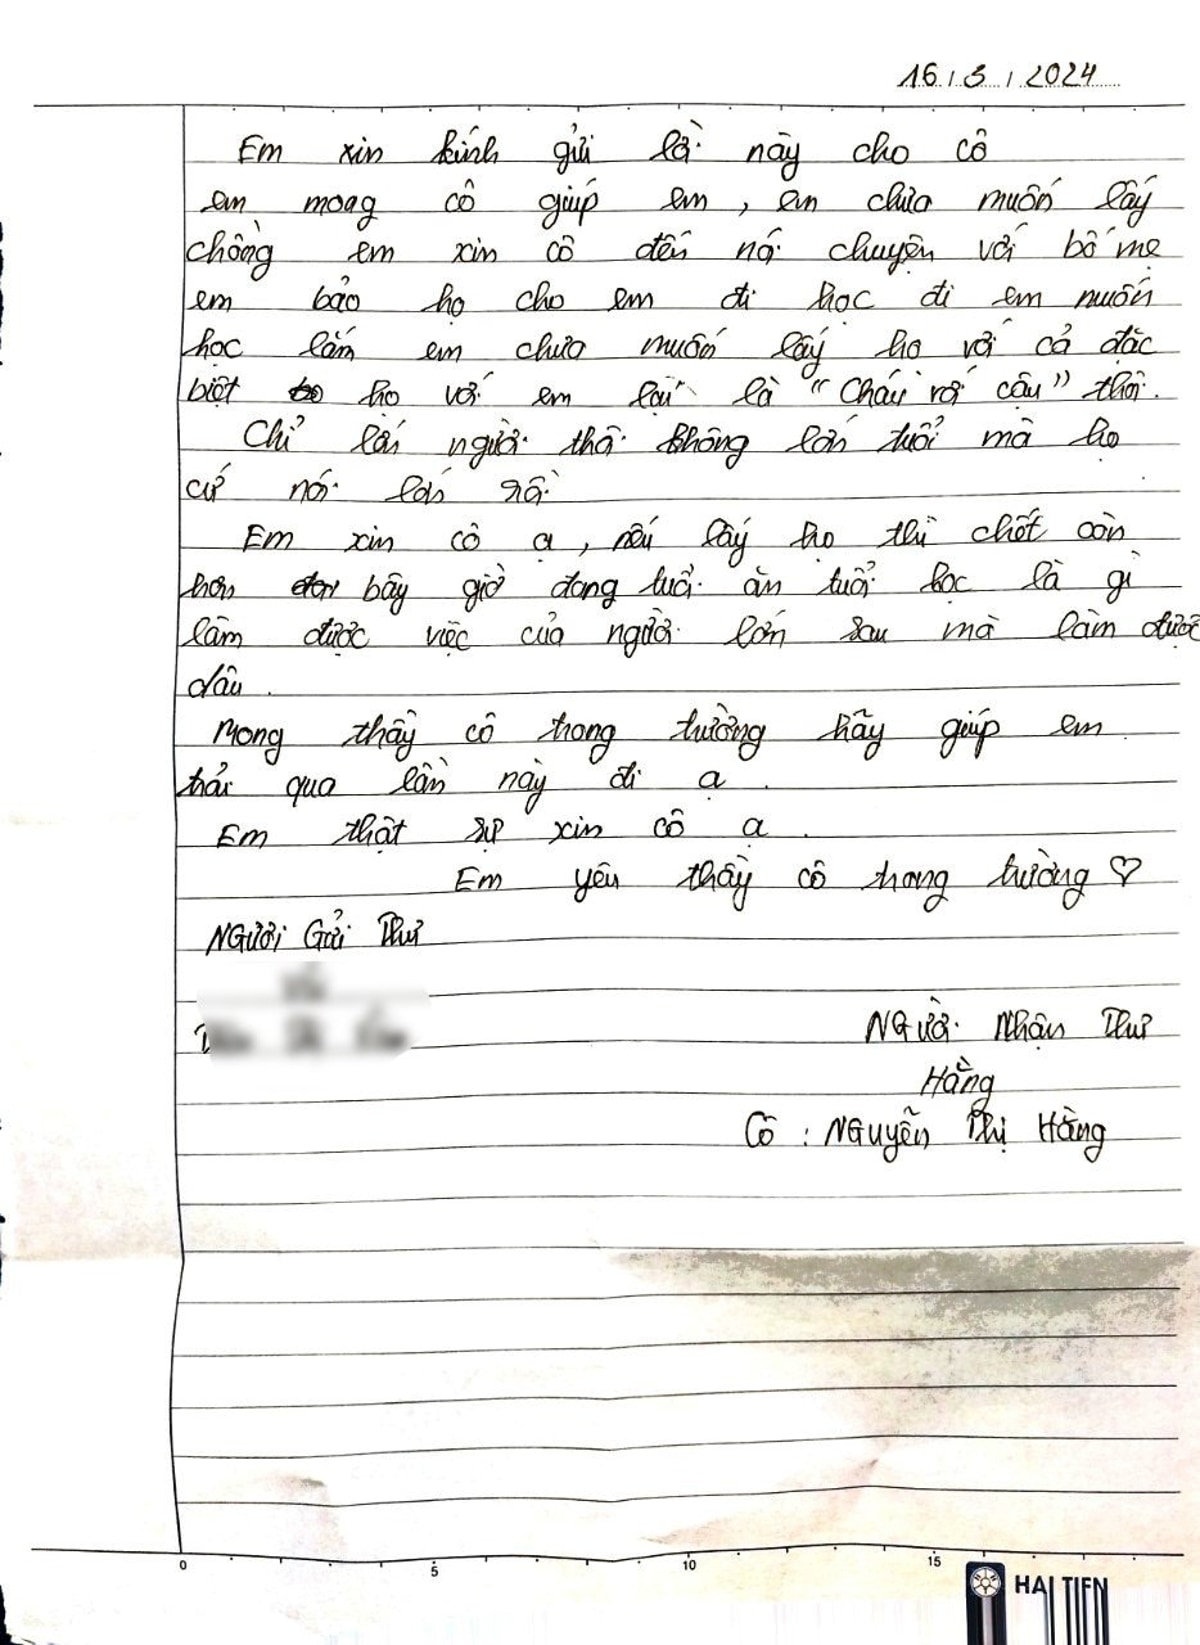 16/3/2024
Em xin kính gửi là này cho cô
em moag cô giúp em, em chưa muốn lấy
chồng em xin cô đến nói chuyện với bố mẹ
em bảo họ cho em đi học đi em muốn
học lắm em chưa muốn lấy họ với cả đặc
biệt họ với em lại là "Cháu với cậu" thôi.
Chỉ lấn người thôi không lớn tuổi mà họ
cứ nói lớn rồi
Em xin cô ạ, nếu lấy họ thì chết còn
hơn bây giờ đang tuổi ăn tuổi học là gì
làm được việc của người lớn sau mà làm được
đâu.
Mong thầy cô trong trường hãy giúp em
trải qua lần này đi ạ.
Em thật sự xin cô ạ.
Em yêu thầy cô trong trường ♡
NGười Gửi Thư
NGười Nhận Thư
Hằng
Cô : NGuyễn Thị Hằng
0 5 10 15
HẢI TIẾN